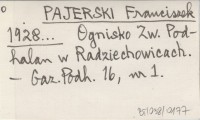 PAJERSKI Franciszek
1928... Ognisko Zw. Pod-
halan w Radziechowicach.
– Gaz. Podh. 16, nr 1.